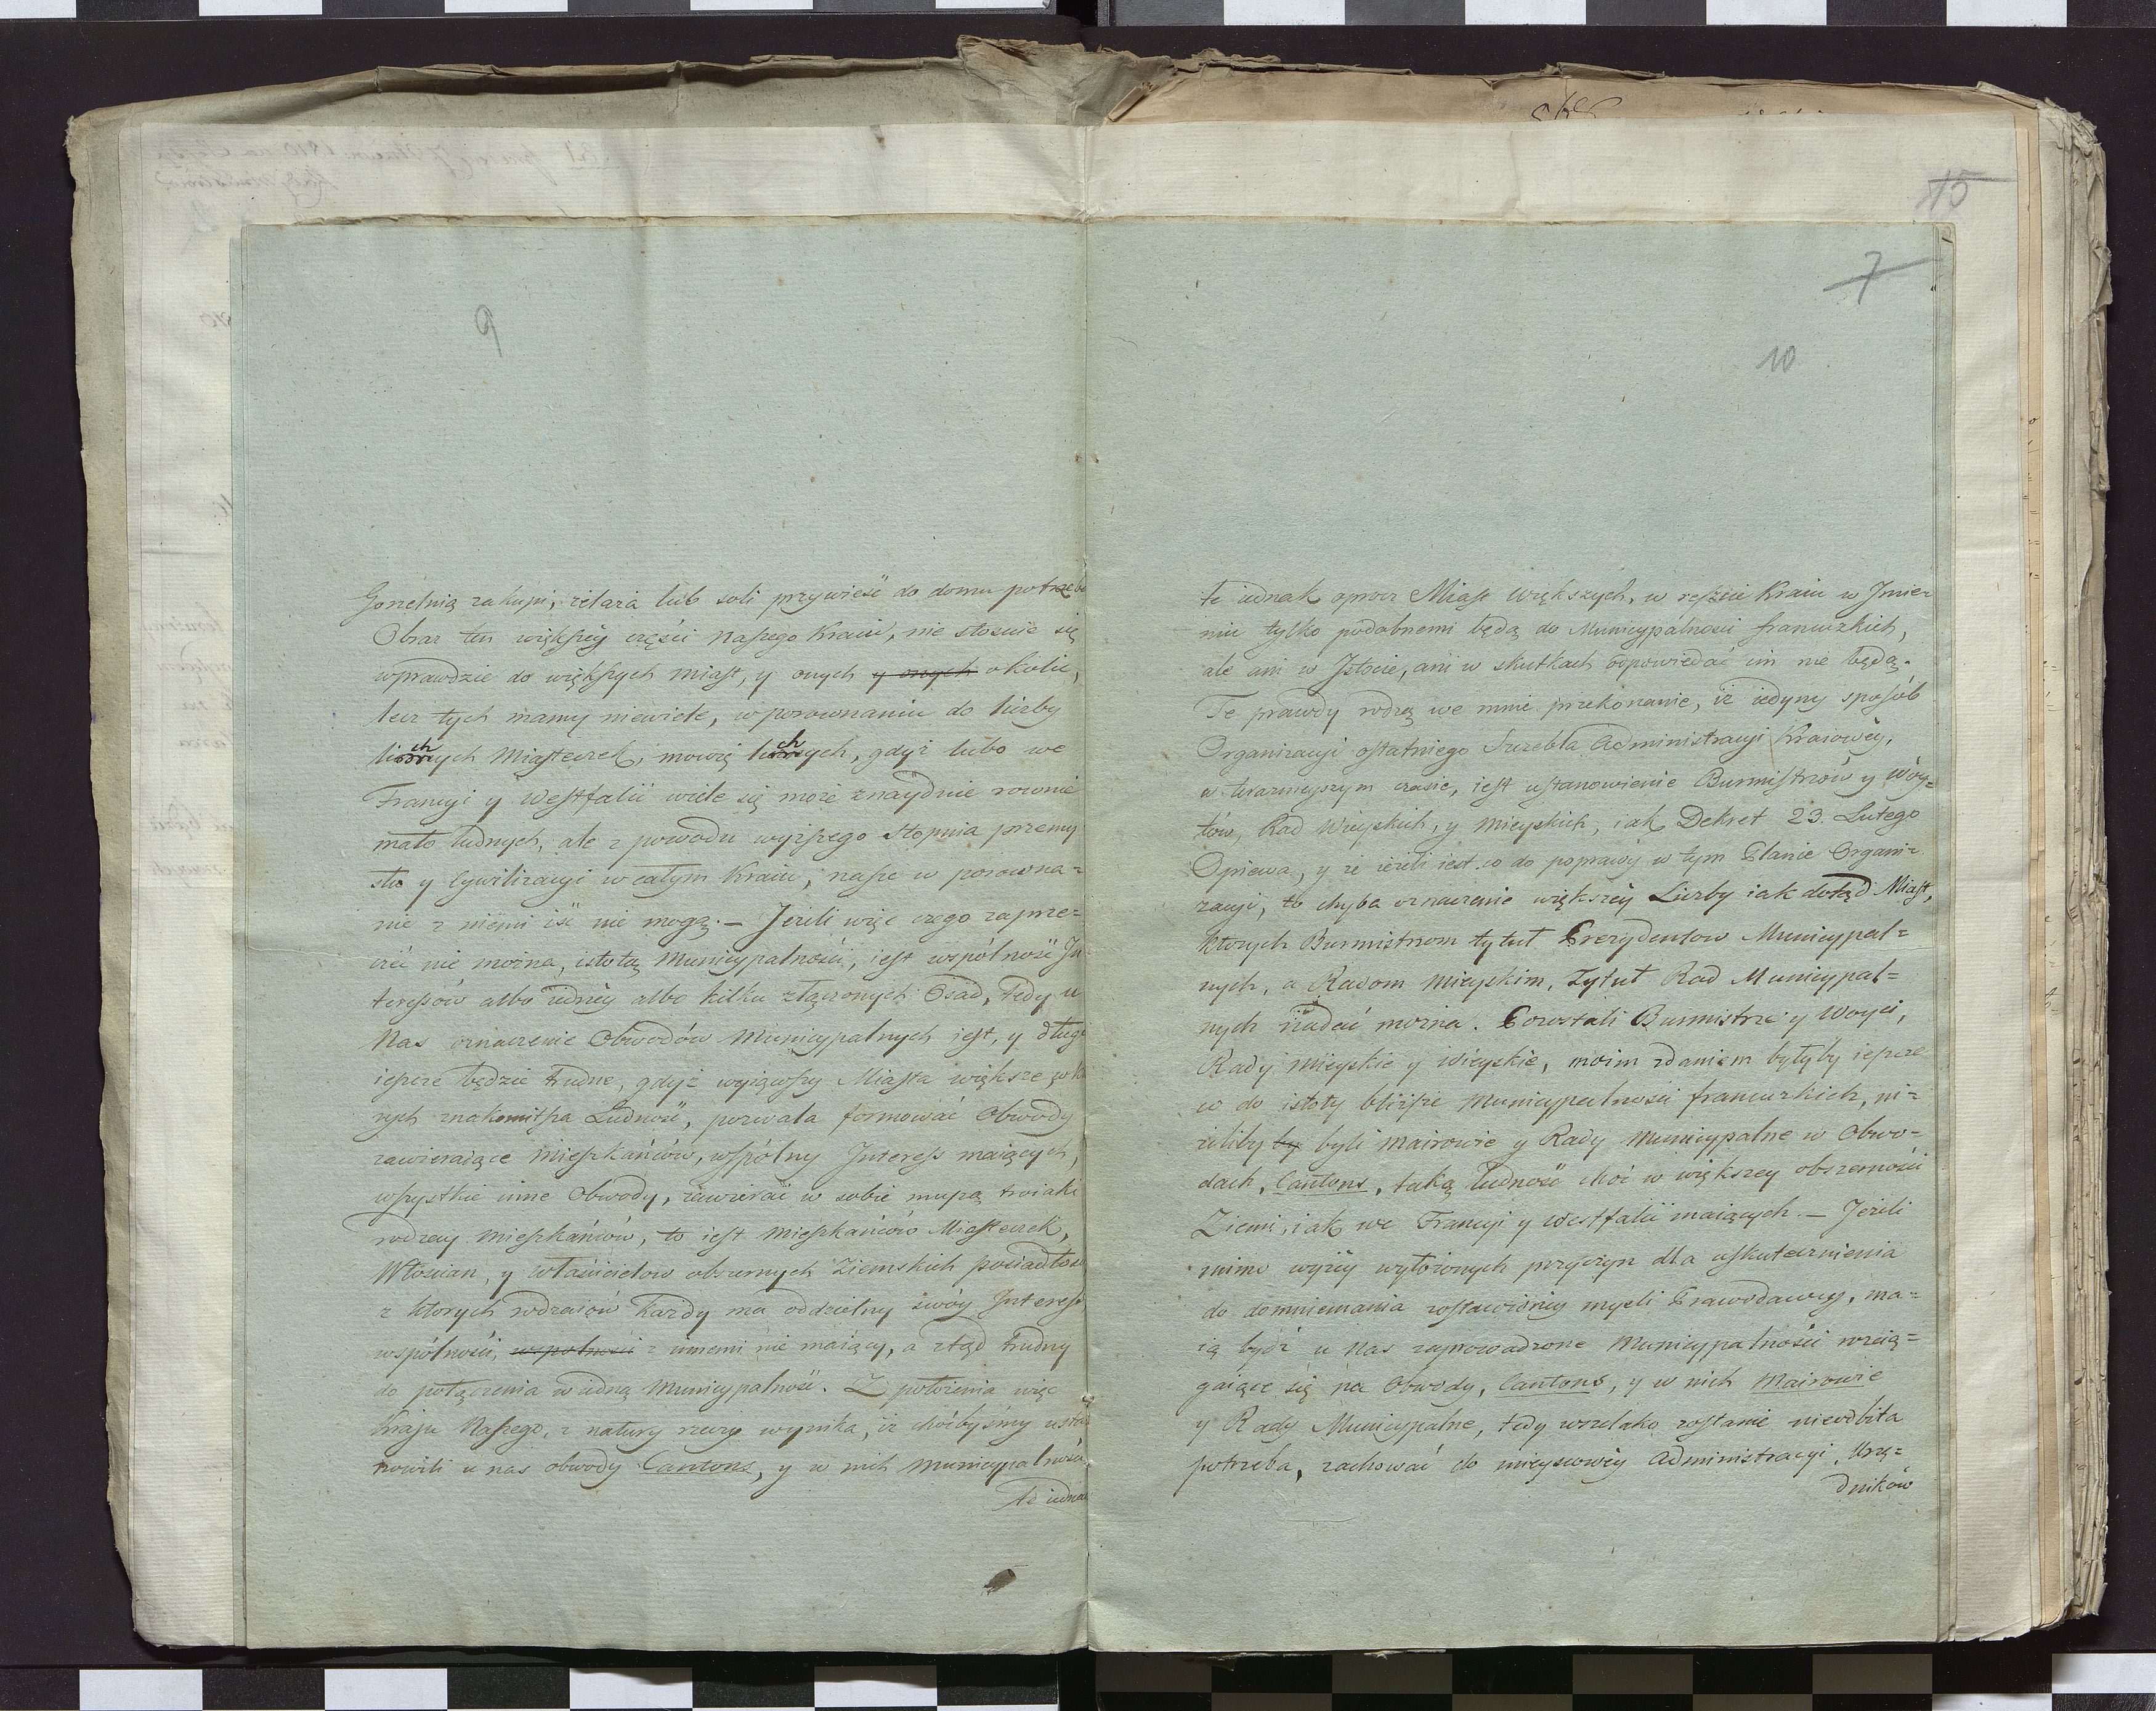 9
Gorzelnią zakupi, żelaza lub soli przywieść do domu potrzeba
Obraz ten większey części naszego Kraiu, nie stosuie się
wprawdzie do większych miast, y onych y onych okolic,
lecz tych mamy niewiele, w porownaniu do liczby
lichych Miasteczek, mowię lichych, gdyż lubo we
Francyi y Westfalii wiele się może znaydzie rownie
mało ludnych, ale z powodu wyższego stopnia przemy
słu y Cywilizacyi w całym Kraiu, nasze w porowna=
nie z niemi iść nie mogą. — Jeżeli więc czego zaprze=
czć nie można, istotą Municypalności, iest wspólność In
teressów albo iedney albo kilku złączonych Osad, tedy u
Nas oznaczenie Obwodów Municypalnych iest, y długo
ieszcze będzie trudne, gdyż wyiąwszy Miasta większe, w któ
rych znakomitsza Ludność, pozwala formować Obwody
zawieraiące mieszkańców, wspólny Interess maiących,
wszystkie inne Obwody, zawierać w sobie muszą troiaki
rodzay mieszkańców, to iest mieszkańców Miasteczek,
Włościan, y właścicielow obszernych Ziemskich posiadłości
z ktorych rodzaiów każdy ma oddzielny swóy Interess
wspólności, wspolności z innemi nie maiący, a ztąd trudny
do połączenia w iedną Municypalność. Z położenia więc
Kraju Naszego, z natury rzeczy wynika, iż choćbyśmy usta
nowili u nas obwody Cantons, y w nich Municypalności,
te iednak
15
7
10
te iednak oprocz Miast większych, w reszcie Kraiu w Jmie=
niu tylko podobnemi będą do Municypalności francuzkich,
ale ani w Jstocie, ani w skutkach odpowiedać im nie będą.
Te prawdy rodzą we mnie przekonanie, iż iedyny sposób
Organizacyi ostatniego Szczebla Administracyi Kraiowey,
w teraznieyszym czasie, iest ustanowienie Burmistrzów y Wóy=
tów, Rad Wieyskich, y Mieyskich, iak Dekret 23 Lutego
Opiewa, y że ieżeli iest co do poprawy w tym Planie Organi=
zacyi, to chyba oznaczenie większey Liczby iak dotąd Miast,
ktorych Burmistrzom tytuł Prezydentow Municypal=
nych, a Radom mieyskim, tytuł Rad Municypal=
nych nadać można. Pozostali Burmistrze y Woyci,
Rady Mieyskie y Wieyskie, moim zdaniem byłyby ieszcze
co do istoty bliższe Municypalności francuzkich, ni=
żeliby by byli Mairowie y Rady Municypalne w Obwo=
dach, Cantons, taką ludność choć w większey obszerności
Ziemi, iak we Francyi y Westfalii maiących. — Jeżeli
mimo wyżey wyłożonych przyczyn dla uskutecznienia
do domniemania zostawioney myśli Prawodawcy, ma=
ią bydź u nas zaprowadzone Municypalności rozcią=
gaiące się na Obwody, Cantons, y w nich Mairowie
y Rady Municypalne, tedy wszelako zostanie nieodbita
potrzeba, zachować do mieyscowey Administracyi, Urzę=
dników